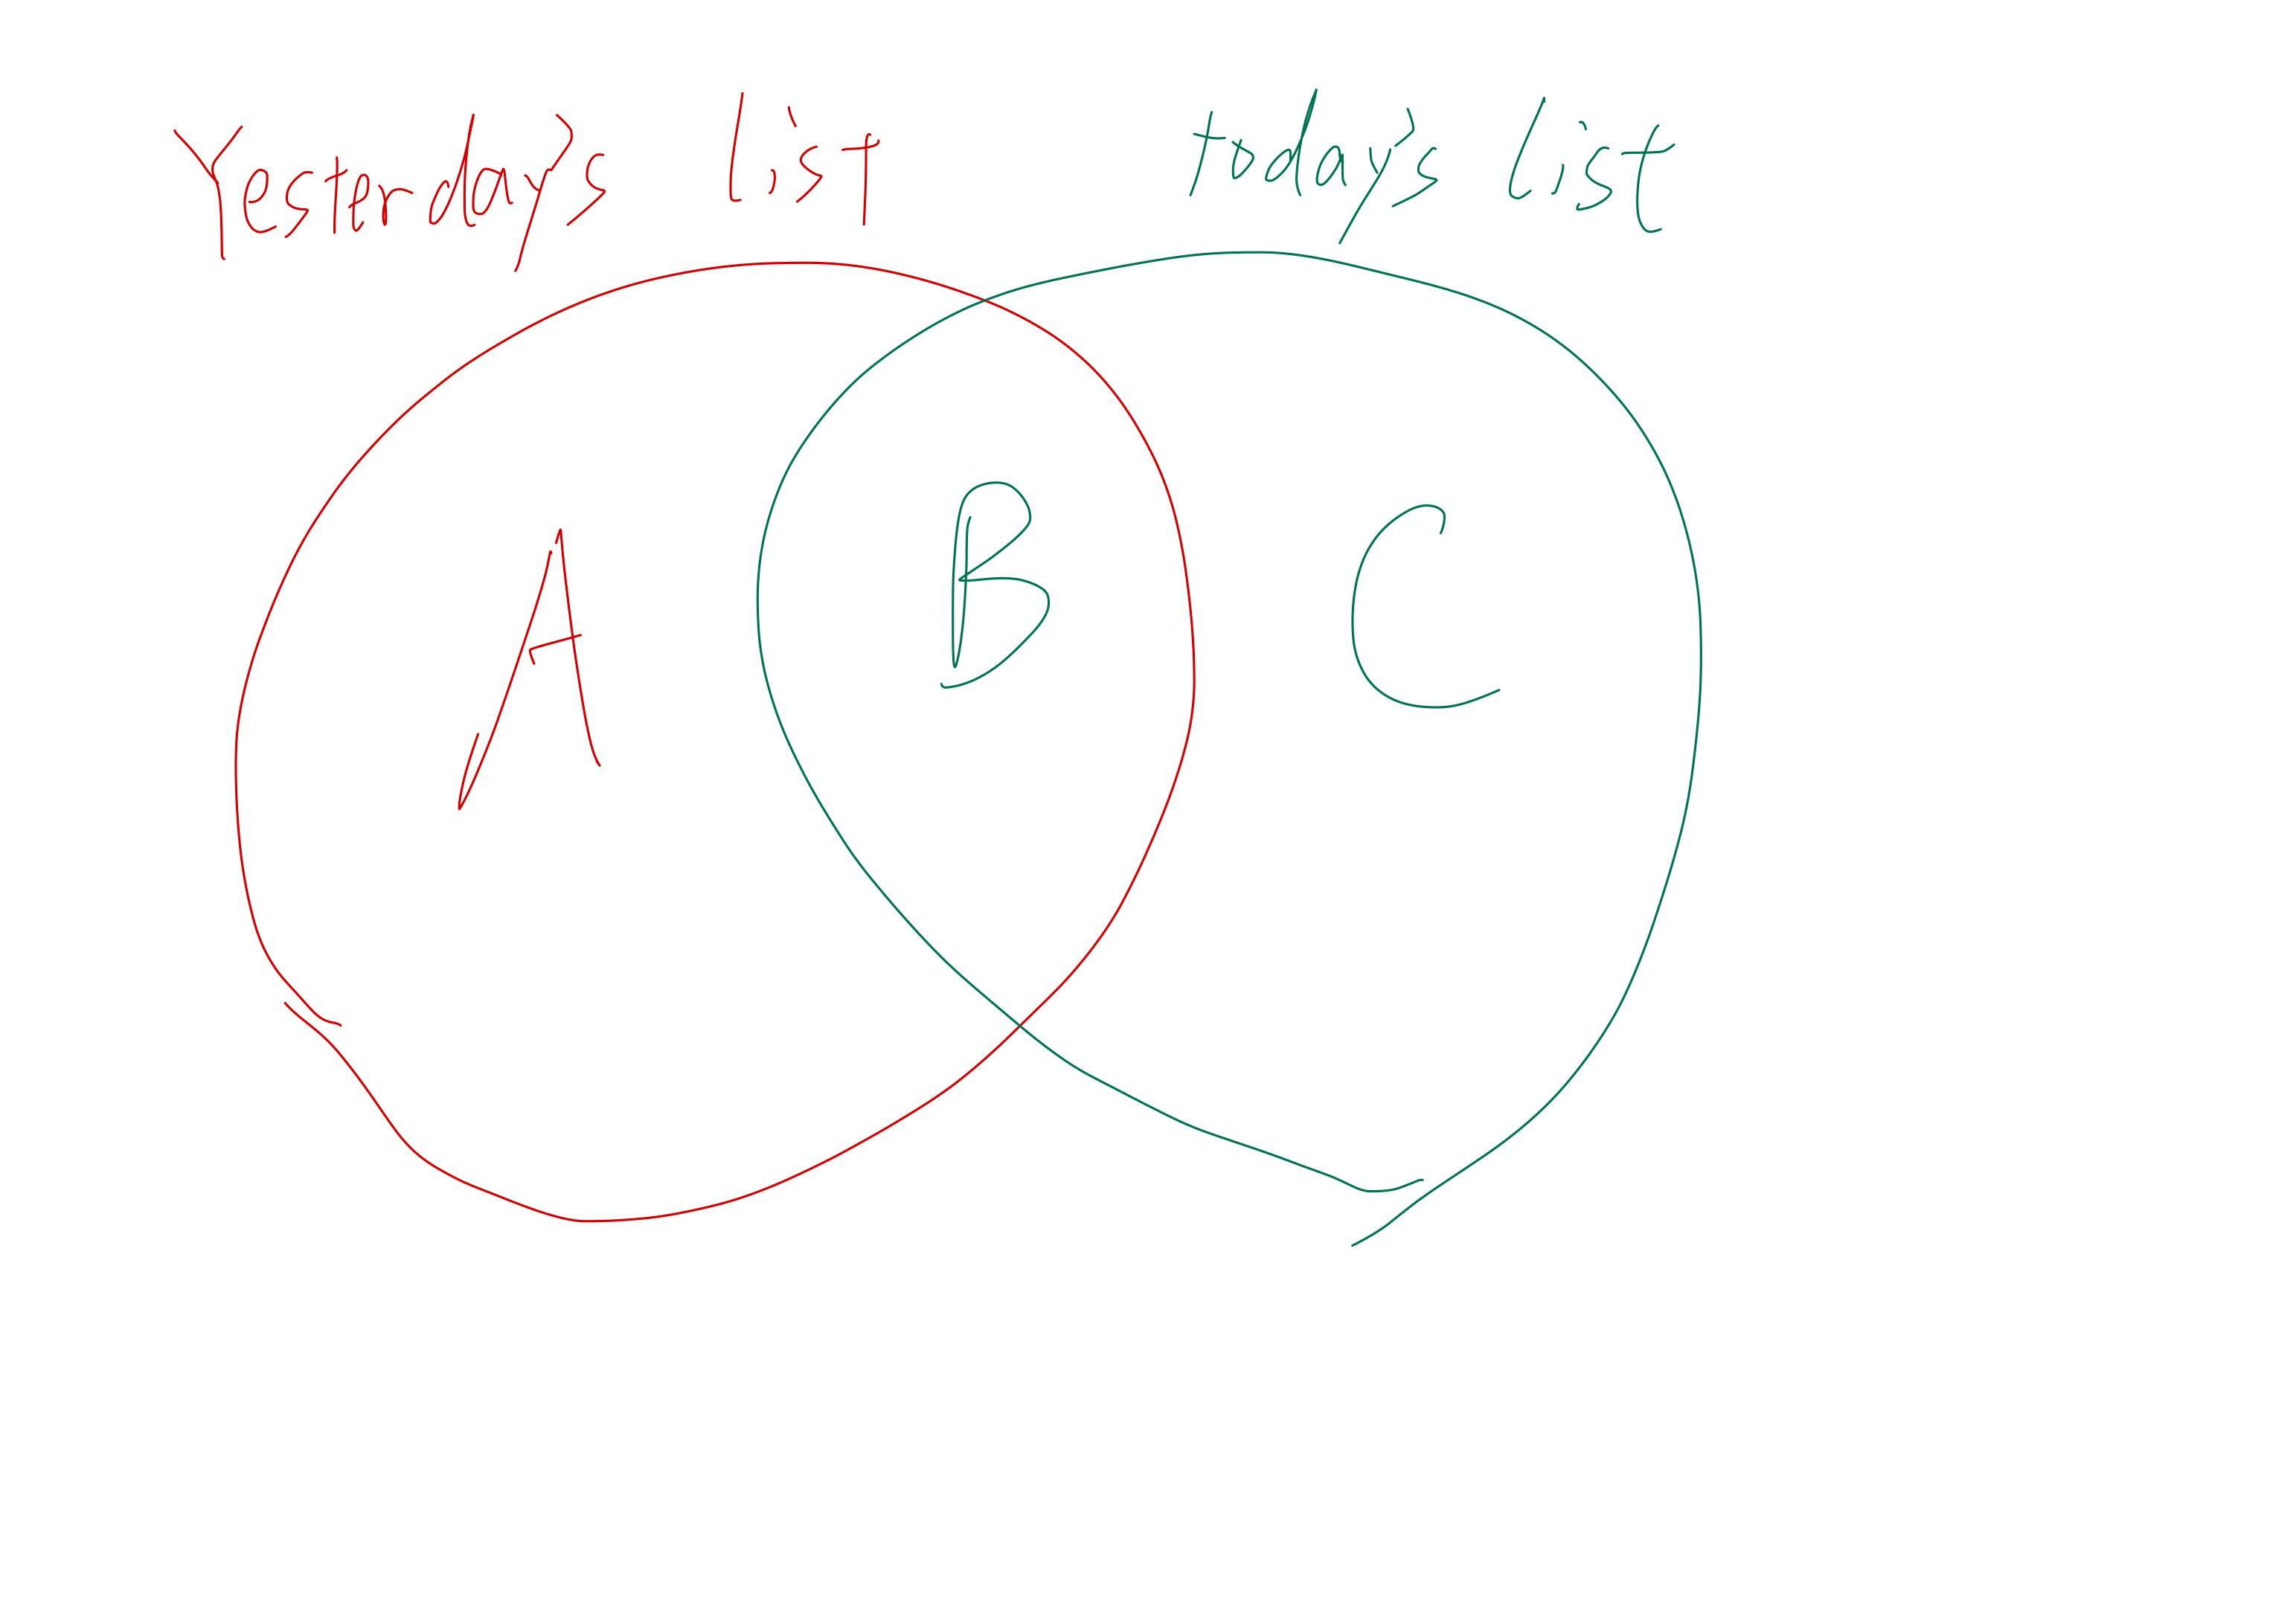 Yesterday's list today's list
A B C